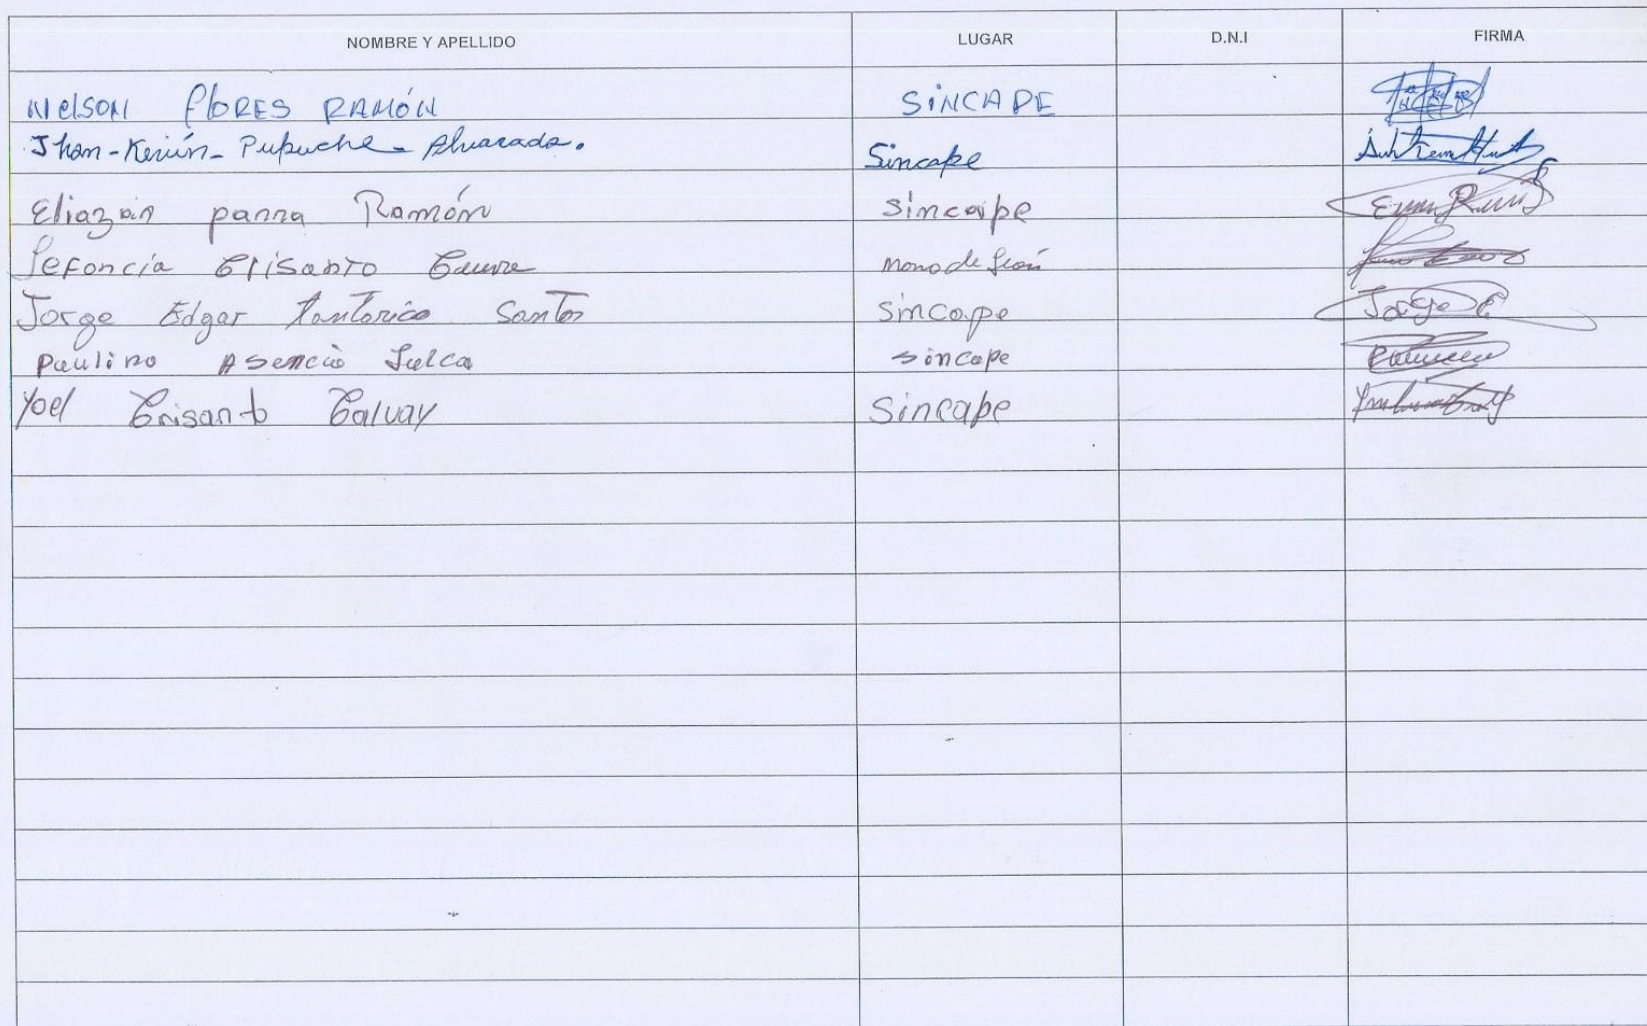 NOMBRE Y APELLIDO LUGAR D.N.I FIRMA
Nelson flORES RAMÓN SiNCAPE
Jhan-Kevin- Pupuche - Alvarado. Sincape
Eliazan parra Ramón Sincape
Crisanto
Jorge Edgar Tantarico Santos Sincape Jorge
Paulino Asencio Sulca sincape
Yoel Crisanto Calvay Sincape